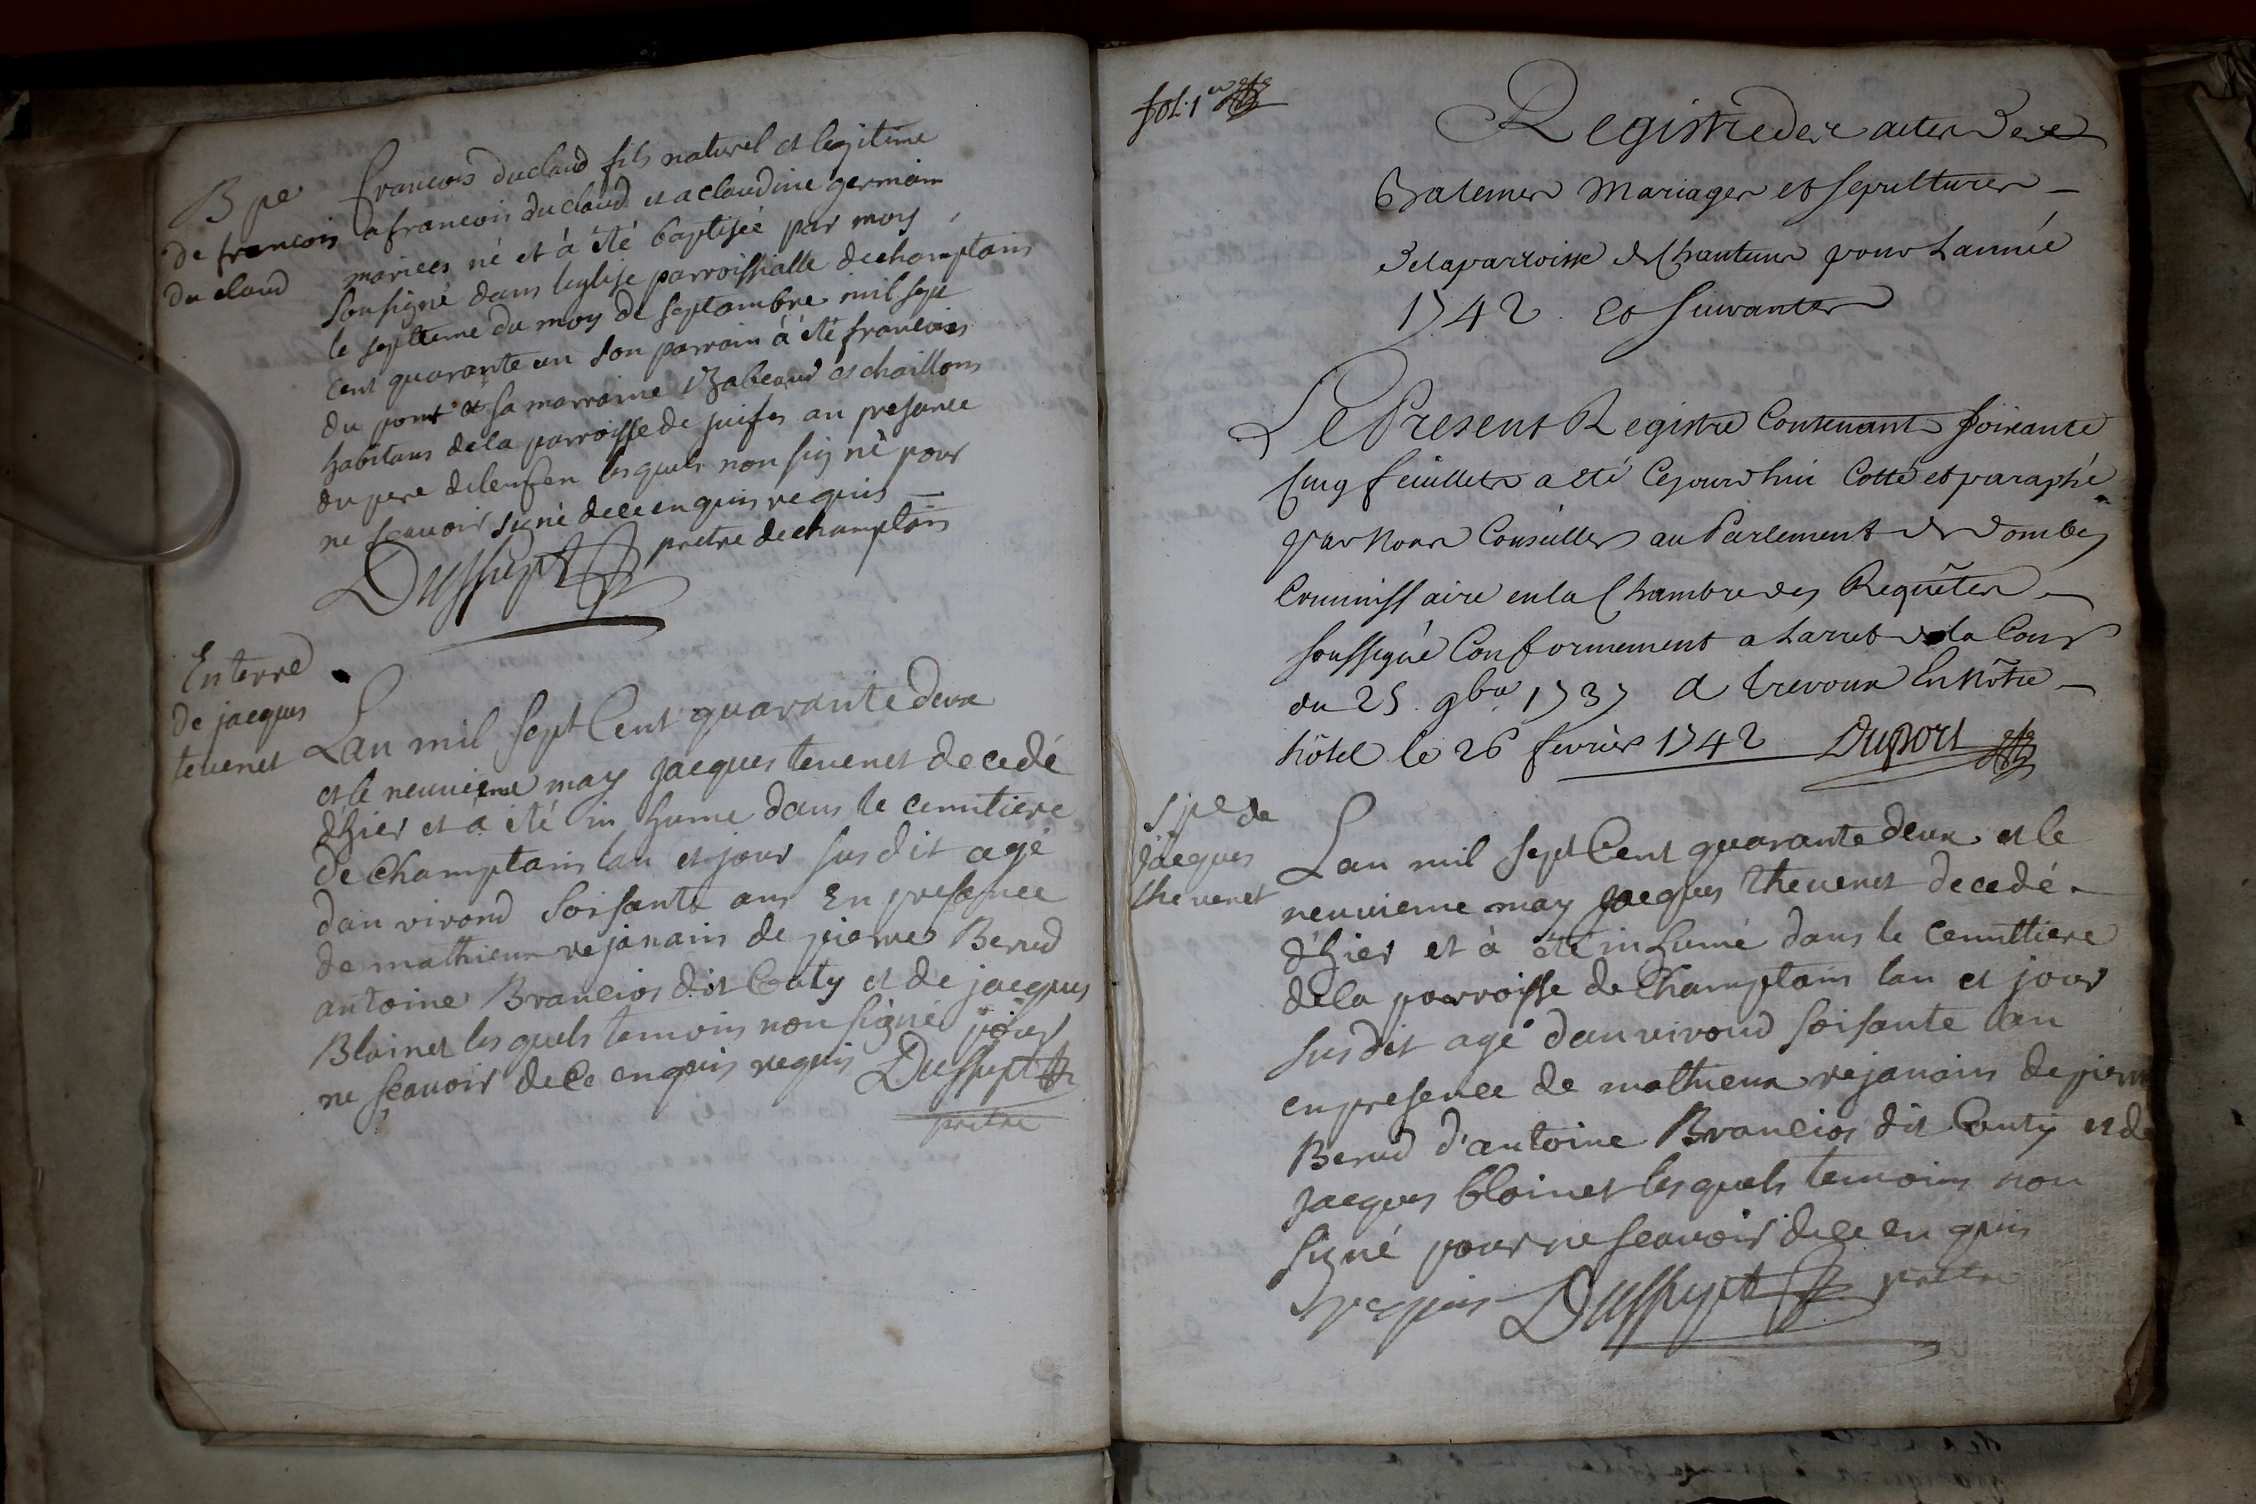 B pe
de francois
du claud
francois du claud fils naturel et legitime
a francois du claud et a claudine germain
mariees né et à été baptisée par moy
sousigné dans leglise parroissialle de champtains
le septieme du moy de septambre mil sept
cent quarante un son parrain à été francois
du pont et sa marraine Izabeaud es chaillons
habitans de la parroisse de juifs an presance
du pere de lenfen lesquels non signé pour
ne scauoir signé de ce enquis requis
Dussupt pretre de champtains
Enterre
de jacques
teuenet
Lan mil sept Cent quarante deux
et le neuuieme may jacques teuenet decedé
dhier et a été in humé dans le cemitiere
de Champtains lan et jour susdit agé
danvirond soisante ans En presence
de mathieux rejanain de pierre Berud
antoine Brancios dit Conty et de jacques
Bloinet lesquels temoins non signé pour
ne scauoir de Ce enquis requis Dussupt
pretre
fol. 1er
Registre des actes de
Batemes Mariages et sepultures
de la parroisse de Chanteins pour Lannée
1742 et suivantes
Le Present Registre Contenant soixante
Cinq feuillets a eté Cejourdhui Cotté et paraphé
par Nous Conseiller au Parlement de Dombes
Commissaire en la Chambre des Requêtes
soussigné Conformement a Larret de la Cour
du 25 9bre 1737 a Trevoux En Nôtre
hôtel le 26 fevrier 1742 Duport
S pe de
jacques
theuenet
Lan mil sept Cent quarante deux et le
neuuieme may jacques Theuenet decedé
dhier et à été inhumé dans le Cemittiere
de la parroisse de Champtains lan et jour
susdit agé danvirond soisante ran
en presence de mathieux rejanain de pierre
Berud d'antoine Brancios dit Conty et de
jacques bloinet lesquels temoins non
signé pour ne scauoir de ce en quis
requis Dussupt pretre